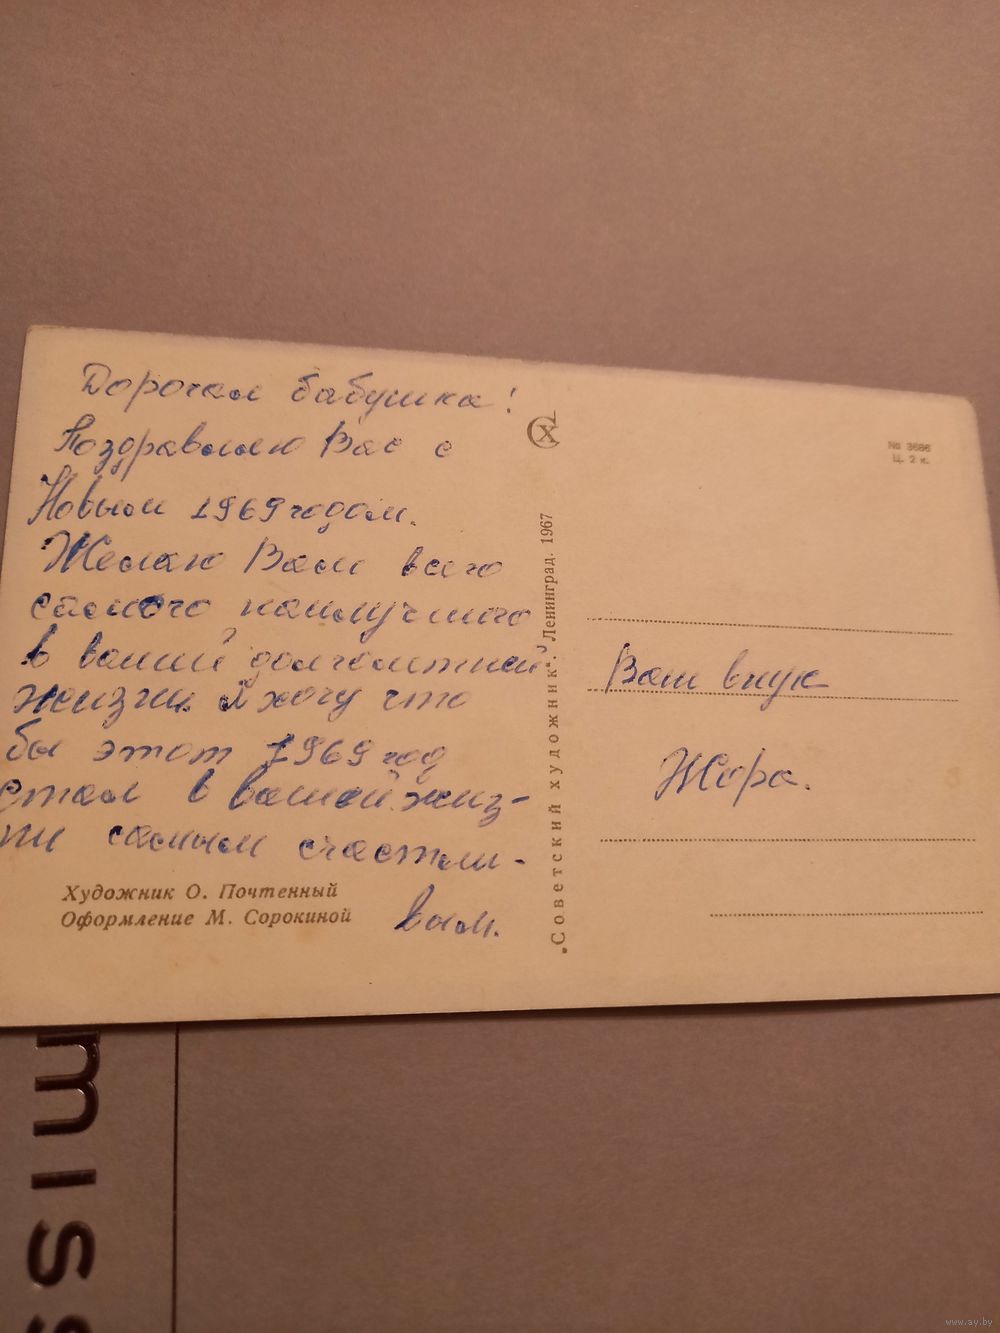 Дорогая бабушка!
Поздравляю Вас с
Новым 1969 годом.
Желаю Вам всего
самого наилучшего
в вашей долголетней
жизни. Я хочу что
бы этот 1969 год
стал в вашей жиз-
ни самым счастли-
вым.
Художник О. Почтенный
Оформление М. Сорокиной
СХ
„Советский художник“. Ленинград. 1967
№ 3686
Ц. 2 к.
Ваш внук
Жора.
miss
www.ay.by